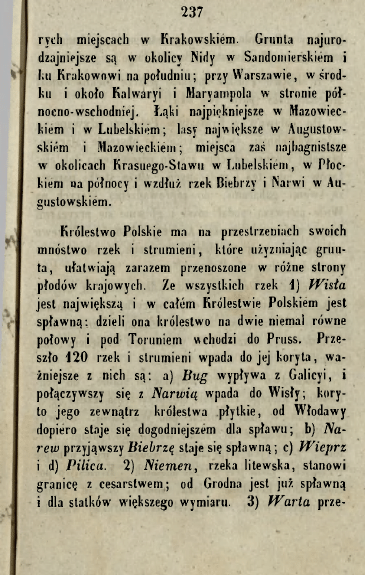 237
rych miejscach w Krakowskiem. Grunta najuro-
dzajniejsze są w okolicy Nidy w Sandomierskiem i
ku Krakowowi na południu; przy Warszawie, w środ-
ku i około Kalwaryi i Maryampola w stronie pół-
nocno-wschodniej. Łąki najpiękniejsze w Mazowiec-
kiem i w Lubelskiem; lasy największe w Augustow-
skiém i Mazowieckiem; miejsca zaś najbagnistsze
w okolicach Krasnego-Stawu w Lubelskiém, w Płoc-
kiem na północy i wzdłuż rzek Biebrzy i Narwi w Au-
gustowskiem.
Królestwo Polskie ma na przestrzeniach swoich
mnóstwo rzek i strumieni, które użyzniając grun-
ta, ułatwiają zarazem przenoszone w różne strony
płodów krajowych. Ze wszystkich rzek 1) Wisła
jest największą i w całém Królestwie Polskiem jest
spławną: dzieli ona królestwo na dwie niemal równe
połowy i pod Toruniem wchodzi do Pruss. Prze-
szło 120 rzek i strumieni wpada do jej koryta, wa-
żniejsze z nich są: a) Bug wypływa z Galicyi, i
połączywszy się z Narwią wpada do Wisły; kory-
to jego zewnątrz królestwa płytkie, od Włodawy
dopiéro staje się dogodniejszém dla spławu; b) Na-
rew przyjąwszy Biebrzę staje się spławną; c) Wieprz
i d) Pilica. 2) Niemen, rzeka litewska, stanowi
granicę z cesarstwem; od Grodna jest już spławną
i dla statków większego wymiaru. 3) Warta prze-